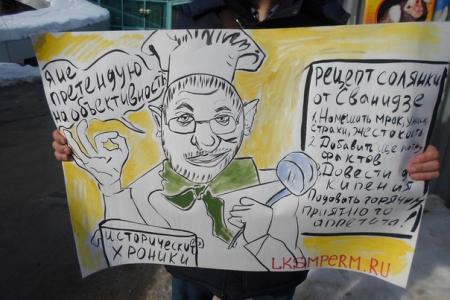 я не
претендую
на объективность
рецепт солянки
от Сванидзе
1. Намешать мрок, ужас,
страхи, жестокость
2. Добавить
фактов
Довести до
кипения
Подавать горячим
приятного
аппетита!
"исторические
хроники"
LKSMPERM.RU